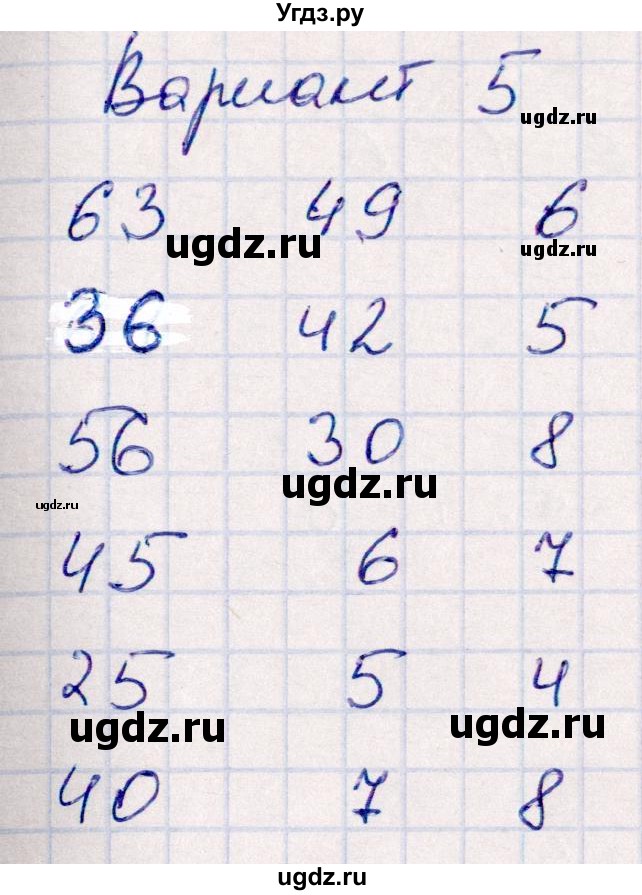 Угдз.ру
Вариант 5
ugdz.ru
63 49 6
ugdz.ru ugdz.ru
36 42 5
56 30 8
ugdz.ru
ugdz.ru
45 6 7
25 5 4
ugdz.ru ugdz.ru
40 7 8
ugdz.ru